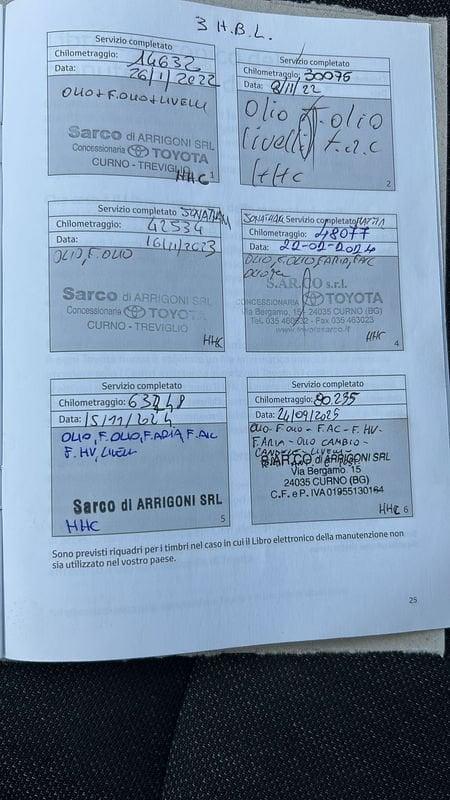 3 H.B.L.
Servizio completato
Chilometraggio: 14632
Data: 26/1/2022
OLIO+F.OLIO+LIVELLI
Sarco di ARRIGONI SRL
Concessionaria TOYOTA
CURNO - TREVIGLIO
HHC
1
Servizio completato
Chilometraggio: 30076
Data: 8/11/22
Olio F.olio
livelli F.a.c
HHC
2
Servizio completato JONATHAN
Chilometraggio: 42534
Data: 16/11/2023
OLIO, F.OLIO
Sarco di ARRIGONI SRL
Concessionaria TOYOTA
CURNO - TREVIGLIO
HHC
JONATHAN Servizio completato MATTIA
Chilometraggio: 48077
Data: 22-02-2024
OLIO, F.OLIO, F.ARIA, F.AC
S.AR.CO s.r.l.
CONCESSIONARIA TOYOTA
Via Bergamo, 15 - 24035 CURNO (BG)
Tel. 035 - Fax 035 463023
www.toyotasarco.it
HHC
4
Servizio completato
Chilometraggio:
Data: 15/11/2024
OLIO, F.OLIO, F.ARIA, F.AC
F.HV, LIVELLI
Sarco di ARRIGONI SRL
HHC
5
Servizio completato
Chilometraggio: 80.235
Data: 24/09/2025
OLIO - F.OLIO - F.AC - F.HV -
F.ARIA - OLIO CAMBIO -
CANDELE - LIVELLI -
SARCO di ARRIGONI SRL
Via Bergamo, 15
24035 CURNO (BG)
C.F. e P. IVA 01955130164
HHC 6
Sono previsti riquadri per i timbri nel caso in cui il Libro elettronico della manutenzione non
sia utilizzato nel vostro paese.
25